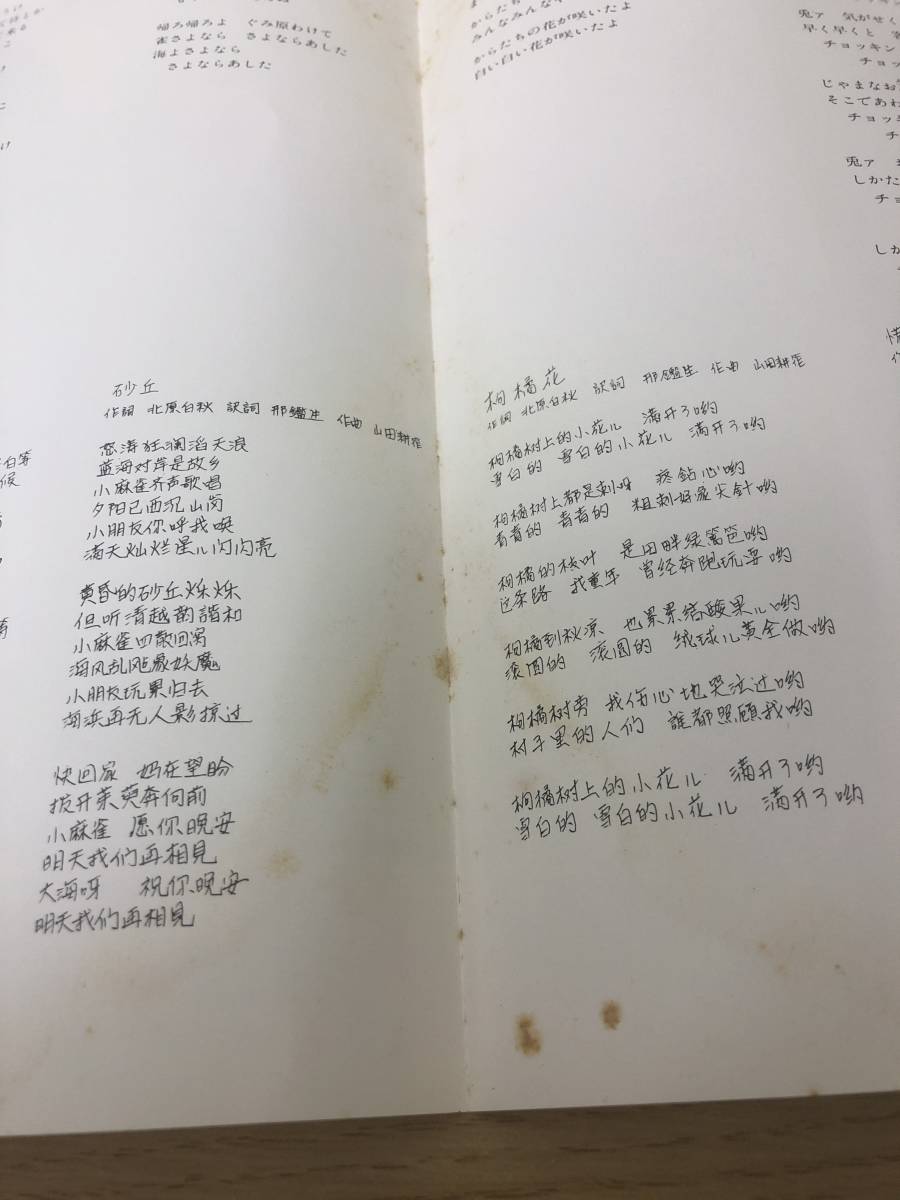 帰ろ帰ろよ　ぐみ原わけて
雀さよなら　さよならあした
海よさよなら
さよならあした
砂丘
作詞 北原白秋 訳詞 那鑑生 作曲 山田耕筰
怒涛狂澜滔天浪
蓝海对岸是故乡
小麻雀齐声歌唱
夕阳已西沉山岗
小朋友你呼我唤
满天灿烂星儿闪闪亮
黄昏的砂丘烁烁
但听清越韵諧和
小麻雀四散回窝
海风乱飑象妖魔
小朋友玩累归去
海浜再无人影掠过
快回家　妈在望盼
拨开茱萸奔向前
小麻雀　愿你晚安
明天我们再相見
大海呀　祝你晚安
明天我们再相見
からたち
みんなみんな
からたちの花が咲いたよ
白い白い花が咲いたよ
枸橘花
作詞 北原白秋 訳詞 那鑑生 作曲 山田耕筰
枸橘树上的小花儿　满开了哟
雪白的　雪白的小花儿　满开了哟
枸橘树上都是刺呀　疼鉆心哟
青青的　青青的　粗刺好象尖針哟
枸橘的枝叶　是田畔绿篱笆哟
这条路　我童年　曾经奔跑玩耍哟
枸橘到秋凉　也累累结酸果儿哟
滚圆的　滚圆的　绒球儿黄金做哟
枸橘树旁　我伤心地哭泣过哟
村子里的人们　誰都照顾我哟
枸橘树上的小花儿　满开了哟
雪白的　雪白的小花儿　满开了哟
兎ァ　気がせく
早く早くと
チョッキン
チョッ
じゃまなお
そこであわ
チョッキ
チ
兎ァ
しかた
チョ
しか